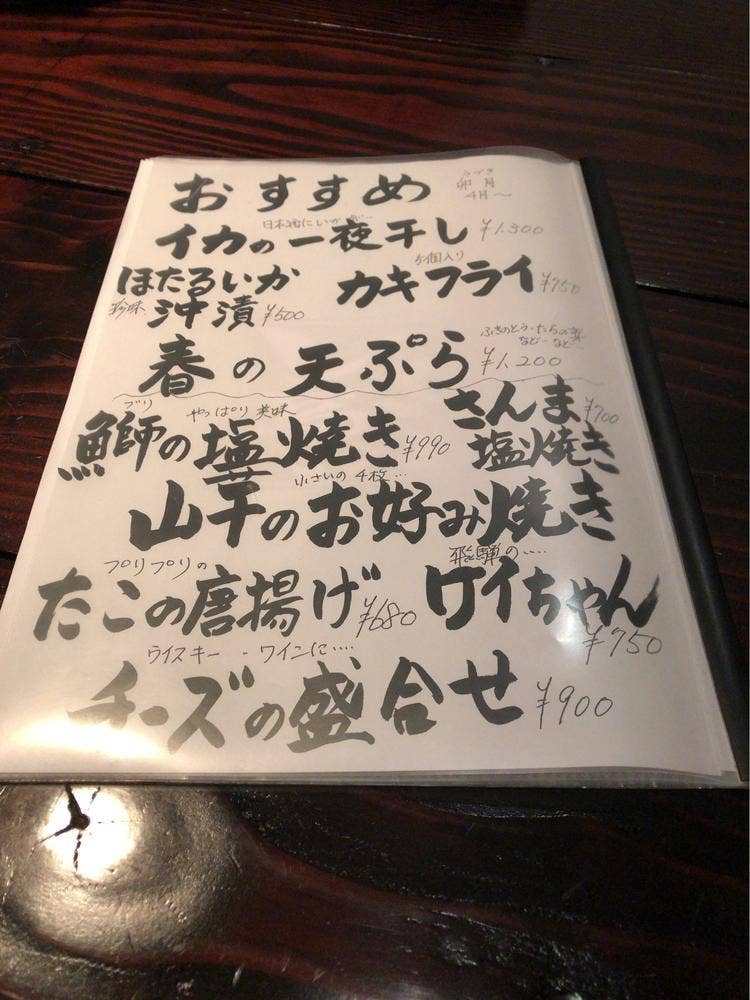 おすすめ
うづき
卯月
4月〜
日本酒にいかが…
イカの一夜干し ¥1,300
ほたるいか
珍味 沖漬 ¥500
5個入り
カキフライ ¥750
春の天ぷら ¥1,200
ふきのとう・たらの芽
などーなど…
ブリ やっぱり美味
鰤の塩焼き ¥990
さんま ¥700
塩焼き
小さいの4枚…
山芋のお好み焼き
プリプリの
たこの唐揚げ ¥680
飛騨の....
ケイちゃん
¥750
ウイスキー - ワインに....
チーズの盛合せ ¥900